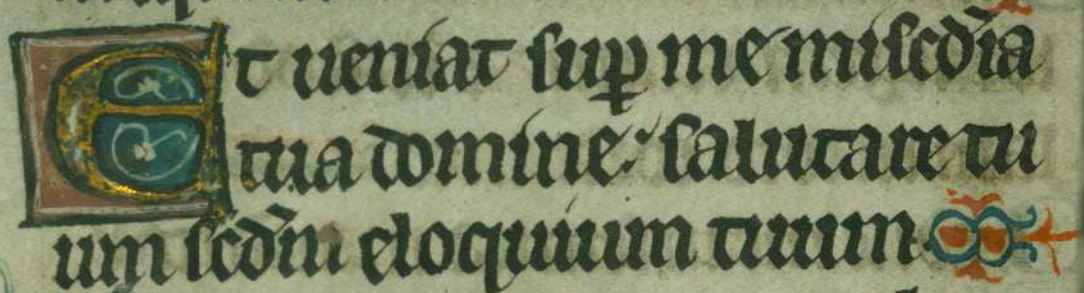 Et ueniat sup̱ me misc̄dia
tua domine: salutare tu
um sc̄dm eloquium tuum